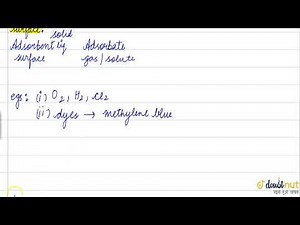 surface. solid
Adsorbent eg Adsorbate
surface gas/solute
egs: (i) O2, H2, Cl2
(ii) dyes → methylene blue
doubtnut